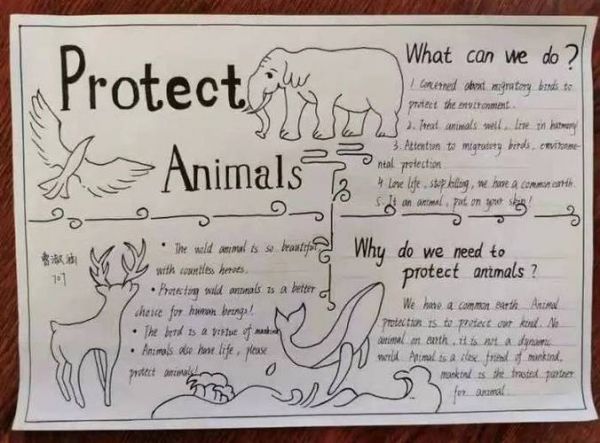 Protect
Animals
What can we do?
1. Concerned about migratory birds to
protect the environment.
2. Treat animals well, live in harmony
3. Attention to migratory birds, environme-
ntal protection
4 Love life, stop killing, we have a common earth.
5. It an animal, put on your skin!
707
• The wild animal is so beautiful
with countless heroes.
• Protecting wild animals is a better
choice for human beings!
• The bird is a virtue of mankind
• Animals also have life, please
protect animals!
Why do we need to
protect animals?
We have a common earth. Animal
protection is to protect our kind. No
animal on earth, it is not a dynamic
world. Animal is a close friend of mankind,
mankind is the trusted partner
for animal.